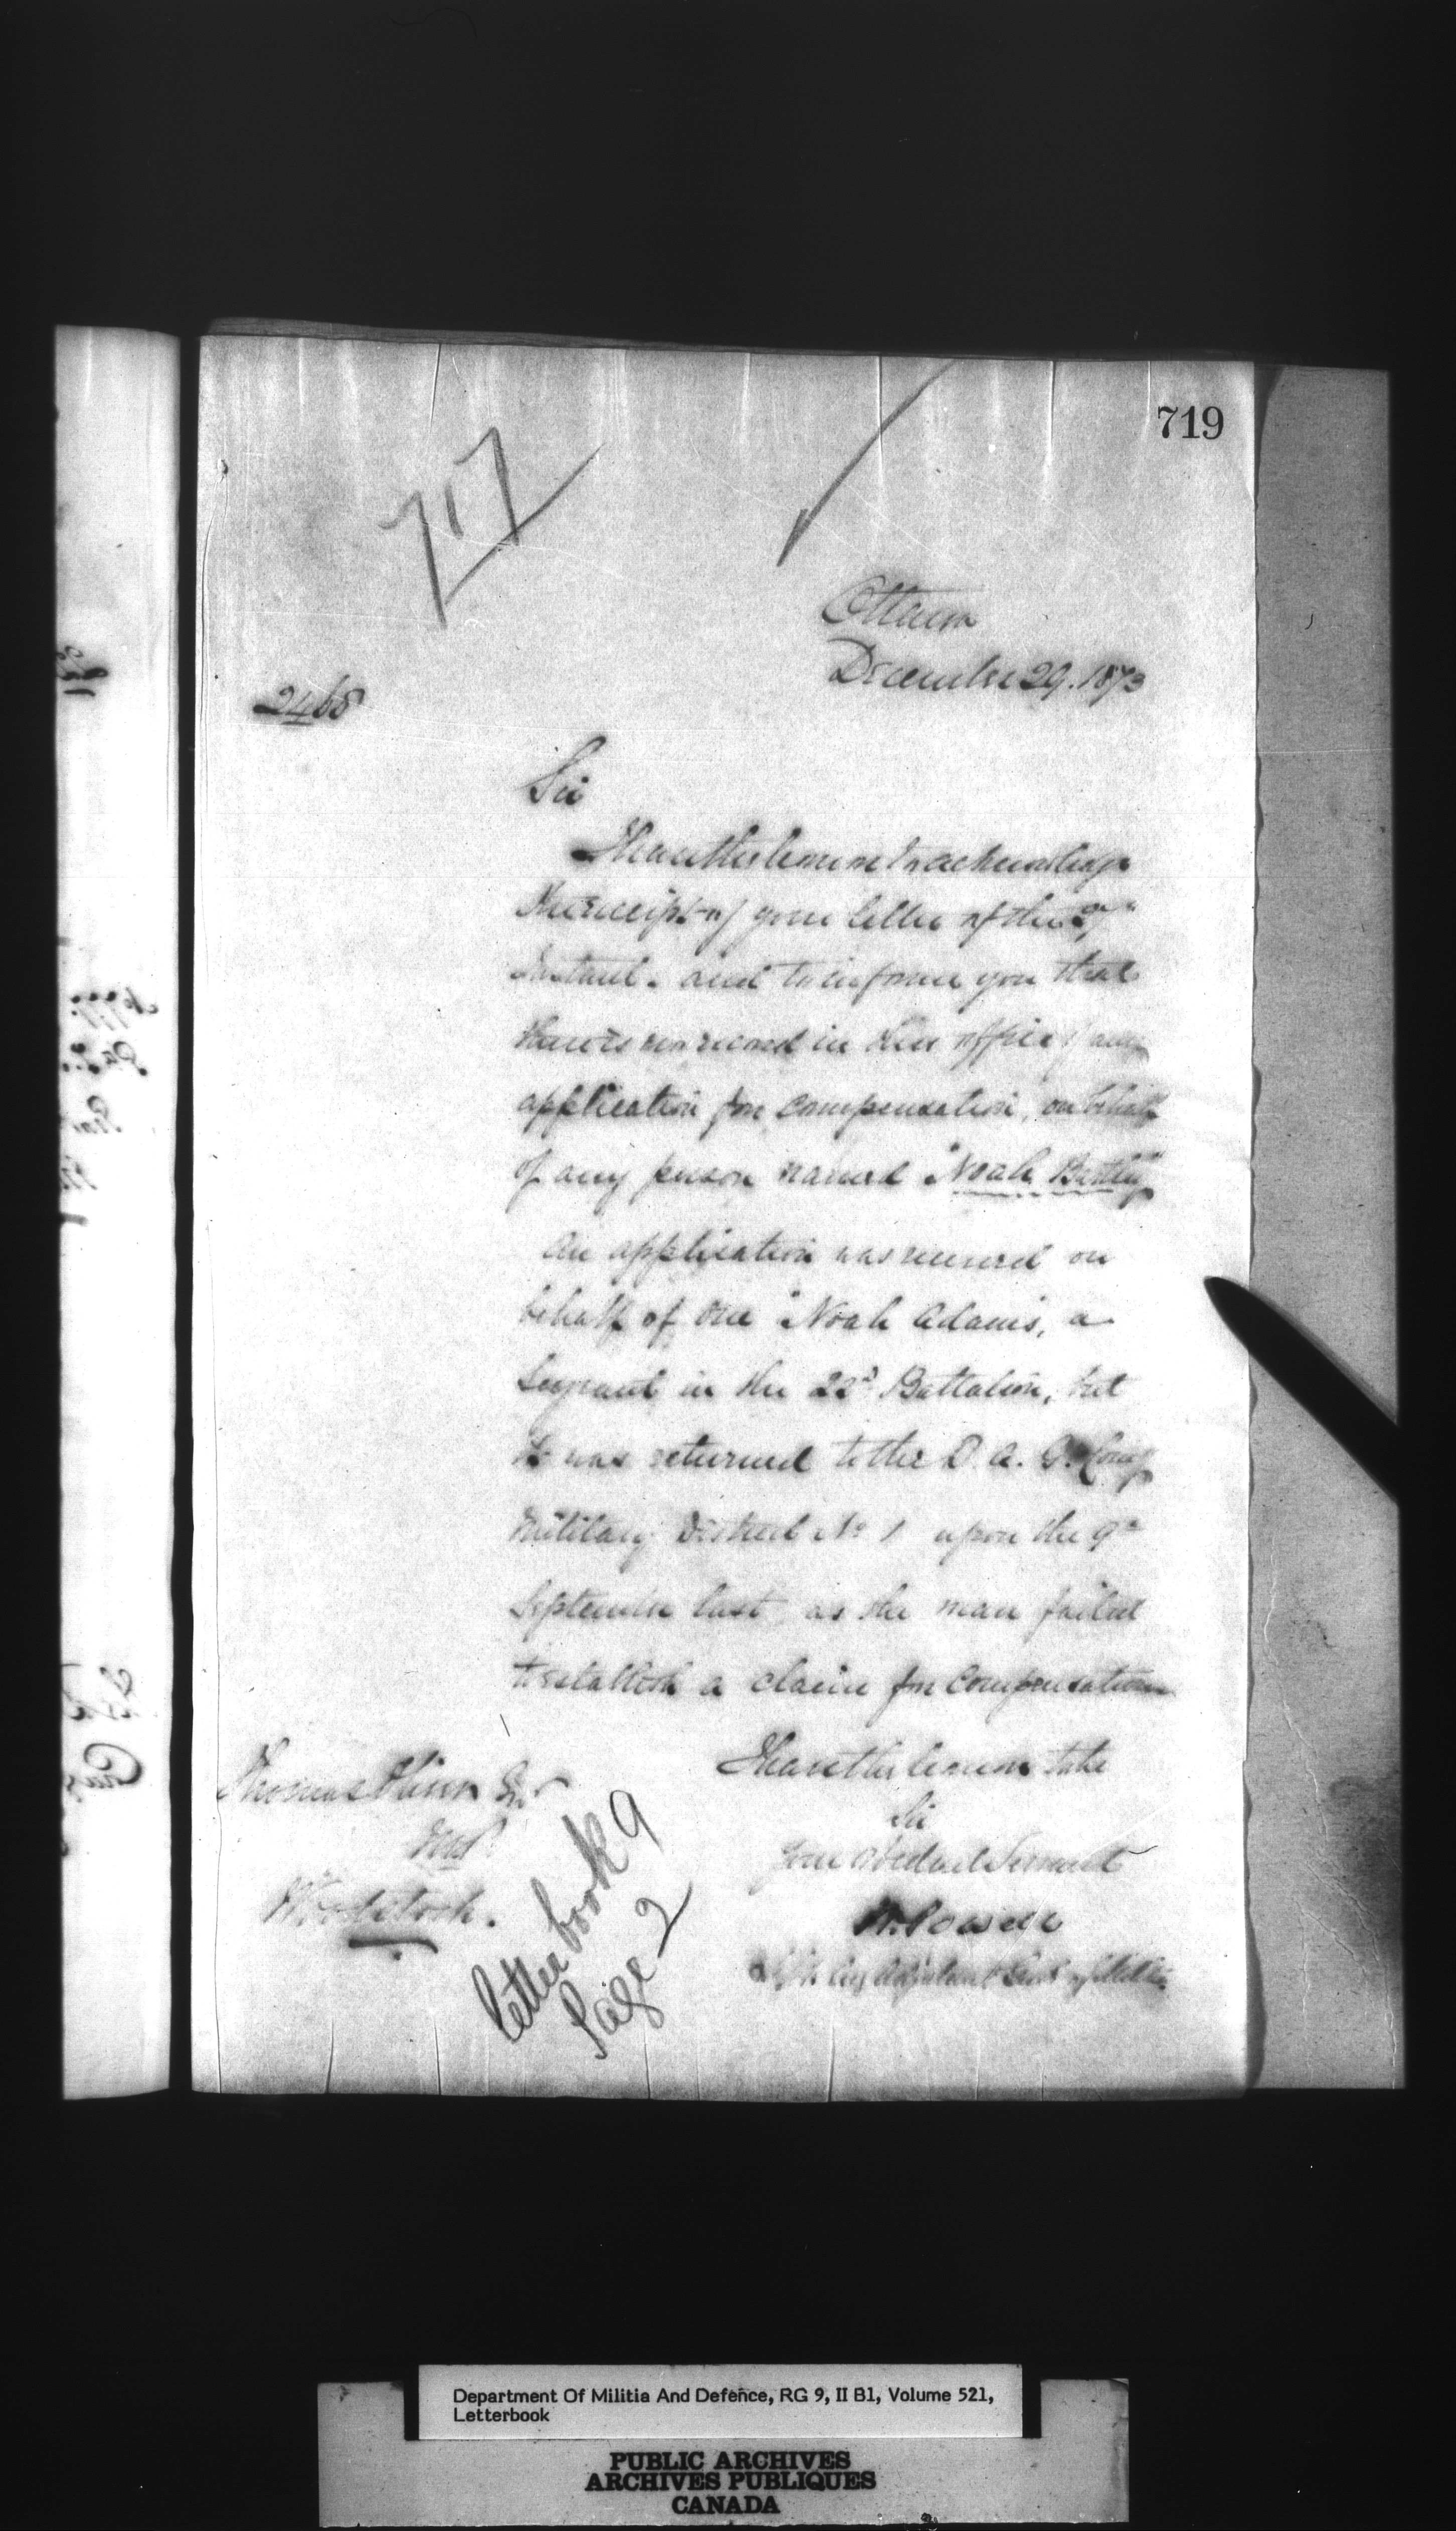 719
717
Ottawa
December 29. 1873
2468
Sir
I have the honor to acknowledge
the receipt of your letter of the
Instant. and to inform you that
there is no record in this office of any
application for compensation, on behalf
of any person named "Noah Bartley"
An application was received on
behalf of one "Noah Adams, a
Sergeant in the 22d Battalion, but
it was returned to the D. A. G. Comg
Military District No 1 upon the 9th
September last as the man failed
to establish a claim for compensation
I have the honor to be
Sir
Your obedient Servant
W. Powell
Adjutant Genl of Militia
Thomas Esqr
Woodstock.
Letter book 9
Page 2
Department Of Militia And Defence, RG 9, II B1, Volume 521,
Letterbook
PUBLIC ARCHIVES
ARCHIVES PUBLIQUES
CANADA